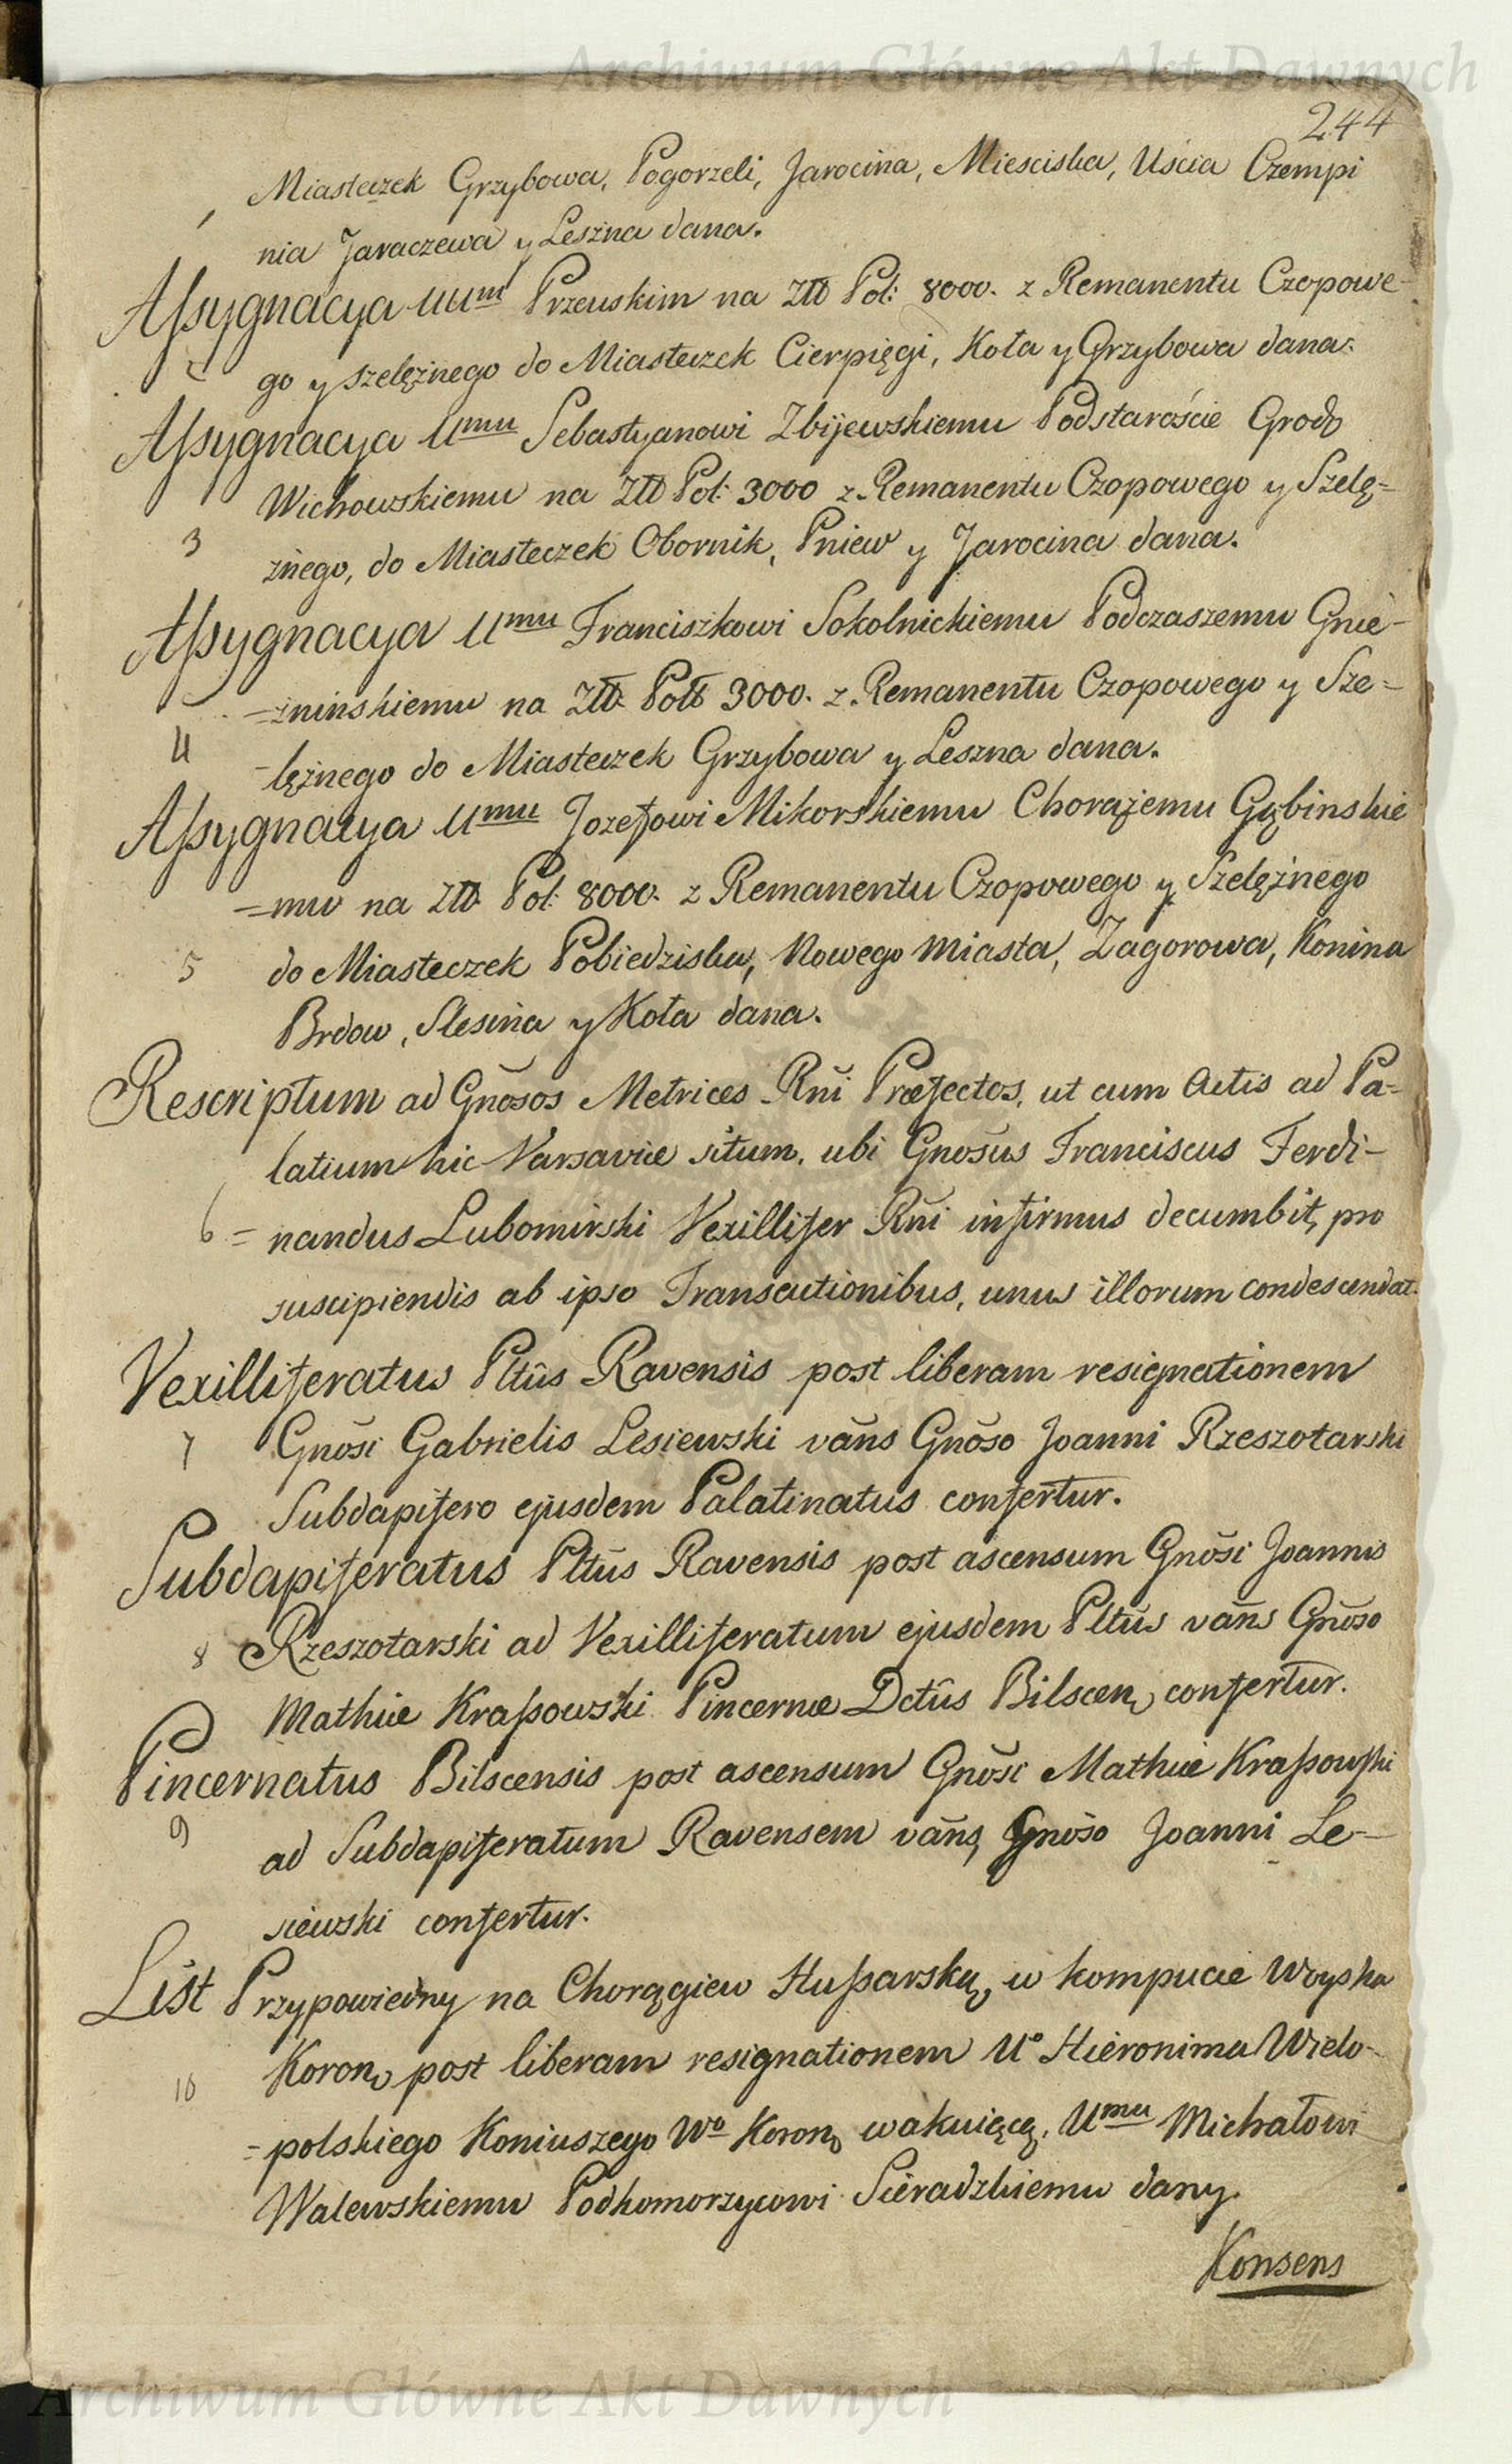 Archiwum Główne Akt Dawnych
244
Miasteczek Grzybowa, Pogorzeli, Jarocina, Miesciska, Uścia Czempi
1 nia Jaraczewa y Leszna dana.
Assygnacya Uum Przeuskim na Złł Pol: 8000. z Remanentu Czopowe-
2 go y szelężnego do Miasteczek Cierpięgi, Koła y Grzybowa dana.
Assygnacya Umu Sebastyanowi Zbijewskiemu Podstarościе Grodo
Wichowskiemu na Złł Pol: 3000 z Remanentu Czopowego y Szelę=
3 żnego, do Miasteczek Obornik, Pniew y Jarocina dana.
Assygnacya Umu Franciszkowi Sokolnickiemu Podczaszemu Gnie-
=znińskiemu na Złł. Poll 3000. z Remanentu Czopowego y Sze=
4 -lężnego do Miasteczek Grzybowa y Leszna dana.
Assygnacya Umu Jozefowi Mikorskiemu Chorążemu Gąbinskie
=mu na Złł Pol: 8000. z Remanentu Czopowego y Szelężnego
5 do Miasteczek Pobiedziska, Nowego Miasta, Zagorowa, Konina
Brdow, Slesina y Koła dana.
Rescriptum ad Gnosos Metrices Rni Præfectos, ut cum Actis ad Pa=
latium hic Varsaviæ situm, ubi Gnosus Franciscus Ferdi-
6 = nandus Lubomirski Vexillifer Rni infirmus decumbit, pro
suscipiendis ab ipso Transactionibus, unus illorum condescendat.
Vexilliferatus Pltûs Ravensis post liberam resignationem
7 Gnosi Gabrielis Lesiewski vãns Gnõso Joanni Rzeszotarski
Subdapifero ejusdem Palatinatus confertur.
Subdapiferatus Pltûs Ravensis post ascensum Gnosi Joannis
8 Rzeszotarski ad Vexilliferatum ejusdem Pltûs vãns Gnõso
Mathiæ Krassowski Pincernæ Dctûs Bilscen, confertur.
Pincernatus Bilscensis post ascensum Gnõsi Mathiæ Krassowski
9 ad Subdapiferatum Ravensem vãns, Gnõso Joanni Le-
siewski confertur.
List Przypowiedny na Chorągiew Hussarską, w kompucie Woyska
Koron, post liberam resignationem Uo Hieronima Wielo-
10 = polskiego Koniuszego Wo Koron, wakuiącą, Umu Michałowi
Walewskiemu Podkomorzycowi Sieradzkiemu dany.
Konsens
Archiwum Główne Akt Dawnych